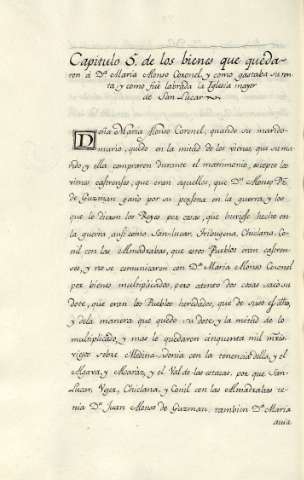 Capitulo 5. de los bienes que queda-
ron á Dª Maria Alonso Coronel, y como gastaba su ren
ta, y como fué labrada la Iglesia mayor
de San Lucar
Doña Maria Alonso Coronel, quando su marido
murio, quedo en la mitad de los vienes que su ma
rido y ella compraron durante el matrimonio, ecepto los
vienes castrenses, que eran aquellos, que Dn Alonso Pz
de Guzman ganó por su persona en la guerra, y los
que le dieron los Reyes por cosas, que huviese hecho en
la guerra, asi como, San lucar, Chiclana, Co
nil con las Almadrabas, que estos Pueblos eran castren
ses, y no se comunicaron con Dª Maria Alonso Coronel
por bienes multiplicados, pero entraro dos cosas saco su
dote, que eran los Pueblos heredados, que de suso es dho,
y de la manera que quedo su dote, y la mitad de lo
multiplicado, y mas le quedaron cinquenta mil mrs
viejos sobre Medina Sidonia con la tenencia della, y el
y el Val de las vacas, por que San
Lucar, Vejer, Chiclana, y Conil con las Almadrabas te
nia Dn Juan Alonso de Guzman, tambien Dª Maria